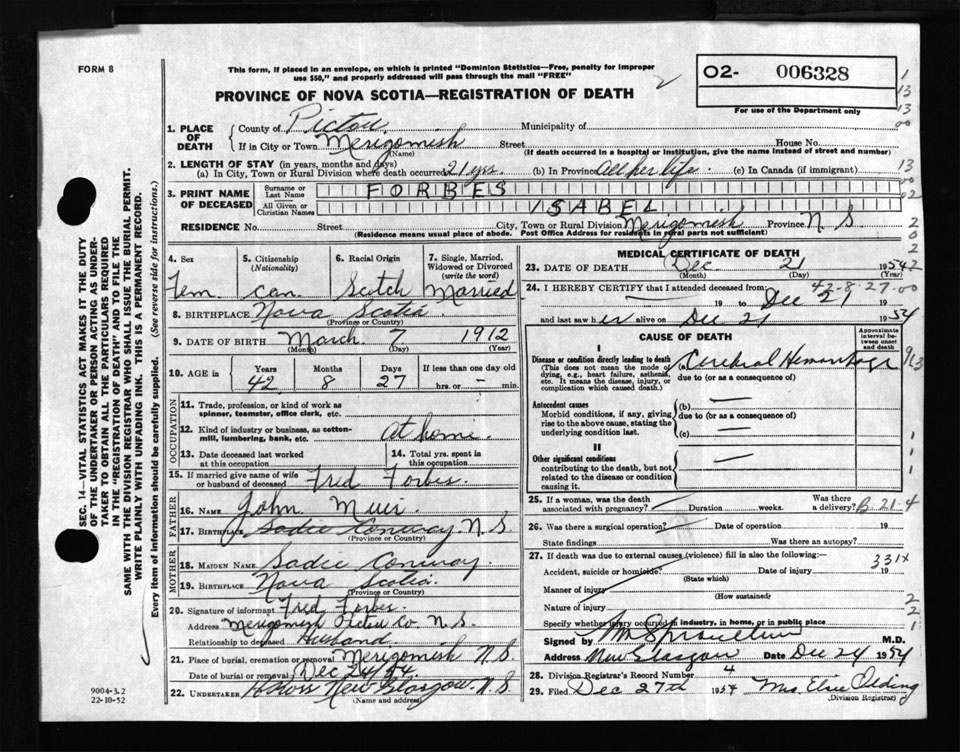 FORM 8
This form, if placed in an envelope, on which is printed "Dominion Statistics—Free, penalty for improper
use $50," and properly addressed will pass through the mail "FREE"
O2- 006328
For use of the Department only
PROVINCE OF NOVA SCOTIA—REGISTRATION OF DEATH
1. PLACE OF DEATH
County of Pictou Municipality of
If in City or Town Merigomish Street House No.
(Name) (If death occurred in a hospital or institution, give the name instead of street and number)
2. LENGTH OF STAY (in years, months and days)
(a) In City, Town or Rural Division where death occurred 21 yrs. (b) In Province All her life. (c) In Canada (if immigrant)
3. PRINT NAME OF DECEASED
Surname or Last Name FORBES
All Given or Christian Names ISABEL
RESIDENCE No. Street City, Town or Rural Division Merigomish Province N S
(Residence means usual place of abode. Post Office Address for residents in rural parts not sufficient)
4. Sex Fem.
5. Citizenship (Nationality) Can.
6. Racial Origin Scotch
7. Single, Married, Widowed or Divorced (write the word) Married
8. BIRTHPLACE Nova Scotia
(Province or Country)
9. DATE OF BIRTH March 7 1912
(Month) (Day) (Year)
10. AGE in Years 42 Months 8 Days 27 If less than one day old hrs. or — min.
OCCUPATION
11. Trade, profession or kind of work as spinner, teamster, office clerk, etc.
12. Kind of industry or business, as cotton-mill, lumbering, bank, etc. At home.
13. Date deceased last worked at this occupation
14. Total yrs. spent in this occupation
15. If married give name of wife or husband of deceased Fred Forbes.
FATHER
16. NAME John Muir
17. BIRTHPLACE Sadie Conway N S
(Province or Country)
MOTHER
18. MAIDEN NAME Sadie Conway
19. BIRTHPLACE Nova Scotia
(Province or Country)
20. Signature of informant Fred Forbes.
Address Merigomish Pictou Co. N. S.
Relationship to deceased Husband
21. Place of burial, cremation or removal Merigomish N.S.
Date of burial or removal Dec 24/54.
22. UNDERTAKER New Glasgow. N.S.
(Name and address)
MEDICAL CERTIFICATE OF DEATH
23. DATE OF DEATH Dec. 21 1954
(Month) (Day) (Year)
42-8-27-00
24. I HEREBY CERTIFY that I attended deceased from:
19 to Dec 21 19
and last saw her alive on Dec 21 1954
CAUSE OF DEATH
Approximate interval between onset and death
I
Disease or condition directly leading to death (a) Cerebral Hemorrhage
(This does not mean the mode of dying, e.g., heart failure, asthenia, etc. It means the disease, injury, or complication which caused death.)
due to (or as a consequence of)
Antecedent causes
Morbid conditions, if any, giving rise to the above cause, stating the underlying condition last.
(b) —
due to (or as a consequence of)
(c) —
II
Other significant conditions
contributing to the death, but not related to the disease or condition causing it.
25. If a woman, was the death associated with pregnancy? Duration weeks. Was there a delivery? B-21-4
26. Was there a surgical operation? Date of operation 19
State findings Was there an autopsy?
27. If death was due to external causes (violence) fill in also the following:—
331x
Accident, suicide or homicide? Date of injury 19
(State which)
Manner of injury
(How sustained)
Nature of injury
Specify whether injury occurred in industry, in home, or in public place
Signed by M.D.
Address New Glasgow Date Dec 24 1954
28. Division Registrar's Record Number 4
29. Filed Dec 27th 1954 Mrs. Elsie Olding
(Division Registrar)
SEC. 14—VITAL STATISTICS ACT MAKES IT THE DUTY
OF THE UNDERTAKER OR PERSON ACTING AS UNDER-
TAKER TO OBTAIN ALL THE PARTICULARS REQUIRED
IN THE "REGISTRATION OF DEATH" AND TO FILE THE
SAME WITH THE DIVISION REGISTRAR WHO SHALL ISSUE THE BURIAL PERMIT.
WRITE PLAINLY WITH UNFADING INK. THIS IS A PERMANENT RECORD.
Every item of information should be carefully supplied. (See reverse side for instructions.)
9004-3.2
22-10-52